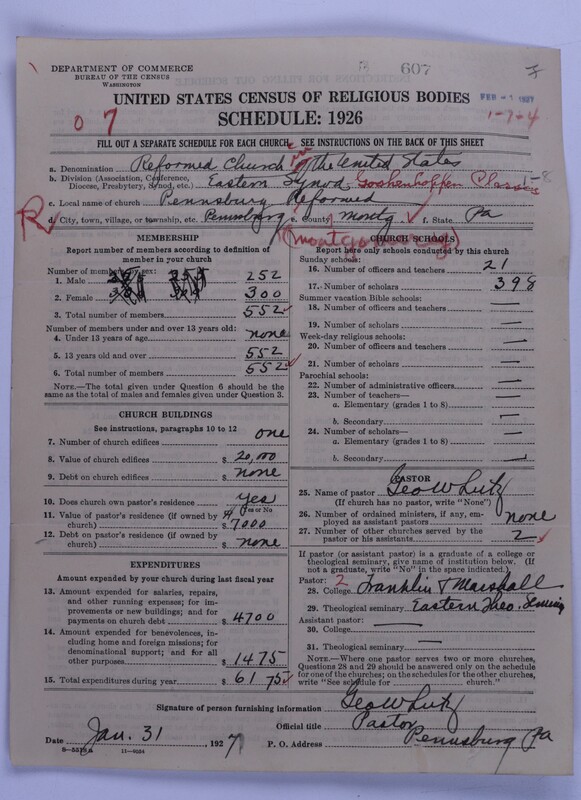 DEPARTMENT OF COMMERCE
BUREAU OF THE CENSUS
WASHINGTON
B 607
FEB -1 1927
UNITED STATES CENSUS OF RELIGIOUS BODIES
1-7-4
SCHEDULE: 1926
0 7
FILL OUT A SEPARATE SCHEDULE FOR EACH CHURCH. SEE INSTRUCTIONS ON THE BACK OF THIS SHEET
a. Denomination Reformed Church in the United States
b. Division (Association, Conference, Diocese, Presbytery, Synod, etc.) Eastern Synod Goshenhoppen Classis
1-8
c. Local name of church Pennsburg Reformed
R
d. City, town, village, or township, etc. Pennsburg e. county Montg f. State Pa
(Montgomery)
MEMBERSHIP
Report number of members according to definition of member in your church
Number of members by sex:
1. Male 252
2. Female 300
3. Total number of members 552
Number of members under and over 13 years old:
4. Under 13 years of age none
5. 13 years old and over 552
6. Total number of members 552
NOTE.—The total given under Question 6 should be the same as the total of males and females given under Question 3.
CHURCH BUILDINGS
See instructions, paragraphs 10 to 12
7. Number of church edifices one
8. Value of church edifices $ 20,000
9. Debt on church edifices $ none
10. Does church own pastor's residence? yes
Yes or No
11. Value of pastor's residence (if owned by church) $ 7000
12. Debt on pastor's residence (if owned by church) $ none
EXPENDITURES
Amount expended by your church during last fiscal year
13. Amount expended for salaries, repairs, and other running expenses; for improvements or new buildings; and for payments on church debt $ 4700
14. Amount expended for benevolences, including home and foreign missions; for denominational support; and for all other purposes $ 1475
15. Total expenditures during year $ 6175
CHURCH SCHOOLS
Report here only schools conducted by this church
Sunday schools:
16. Number of officers and teachers 21
17. Number of scholars 398
Summer vacation Bible schools:
18. Number of officers and teachers —
19. Number of scholars —
Week-day religious schools:
20. Number of officers and teachers —
21. Number of scholars —
Parochial schools:
22. Number of administrative officers —
23. Number of teachers—
a. Elementary (grades 1 to 8)
b. Secondary —
24. Number of scholars—
a. Elementary (grades 1 to 8)
b. Secondary —
PASTOR
25. Name of pastor Geo W Lutz
(If church has no pastor, write "None")
26. Number of ordained ministers, if any, employed as assistant pastors none
27. Number of other churches served by the pastor or his assistants 2
If pastor (or assistant pastor) is a graduate of a college or theological seminary, give name of institution below. (If not a graduate, write "No" in the space indicated.)
Pastor: 2
28. College Franklin & Marshall
29. Theological seminary Eastern Theo.
Assistant pastor:
30. College —
31. Theological seminary —
NOTE.—Where one pastor serves two or more churches, Questions 28 and 29 should be answered only on the schedule for one of the churches; on the schedules for the other churches, write "See schedule for church."
Signature of person furnishing information Geo W Lutz
Official title Pastor
Date Jan. 31 1927
P. O. Address Pennsburg Pa
8-551a 11-4034